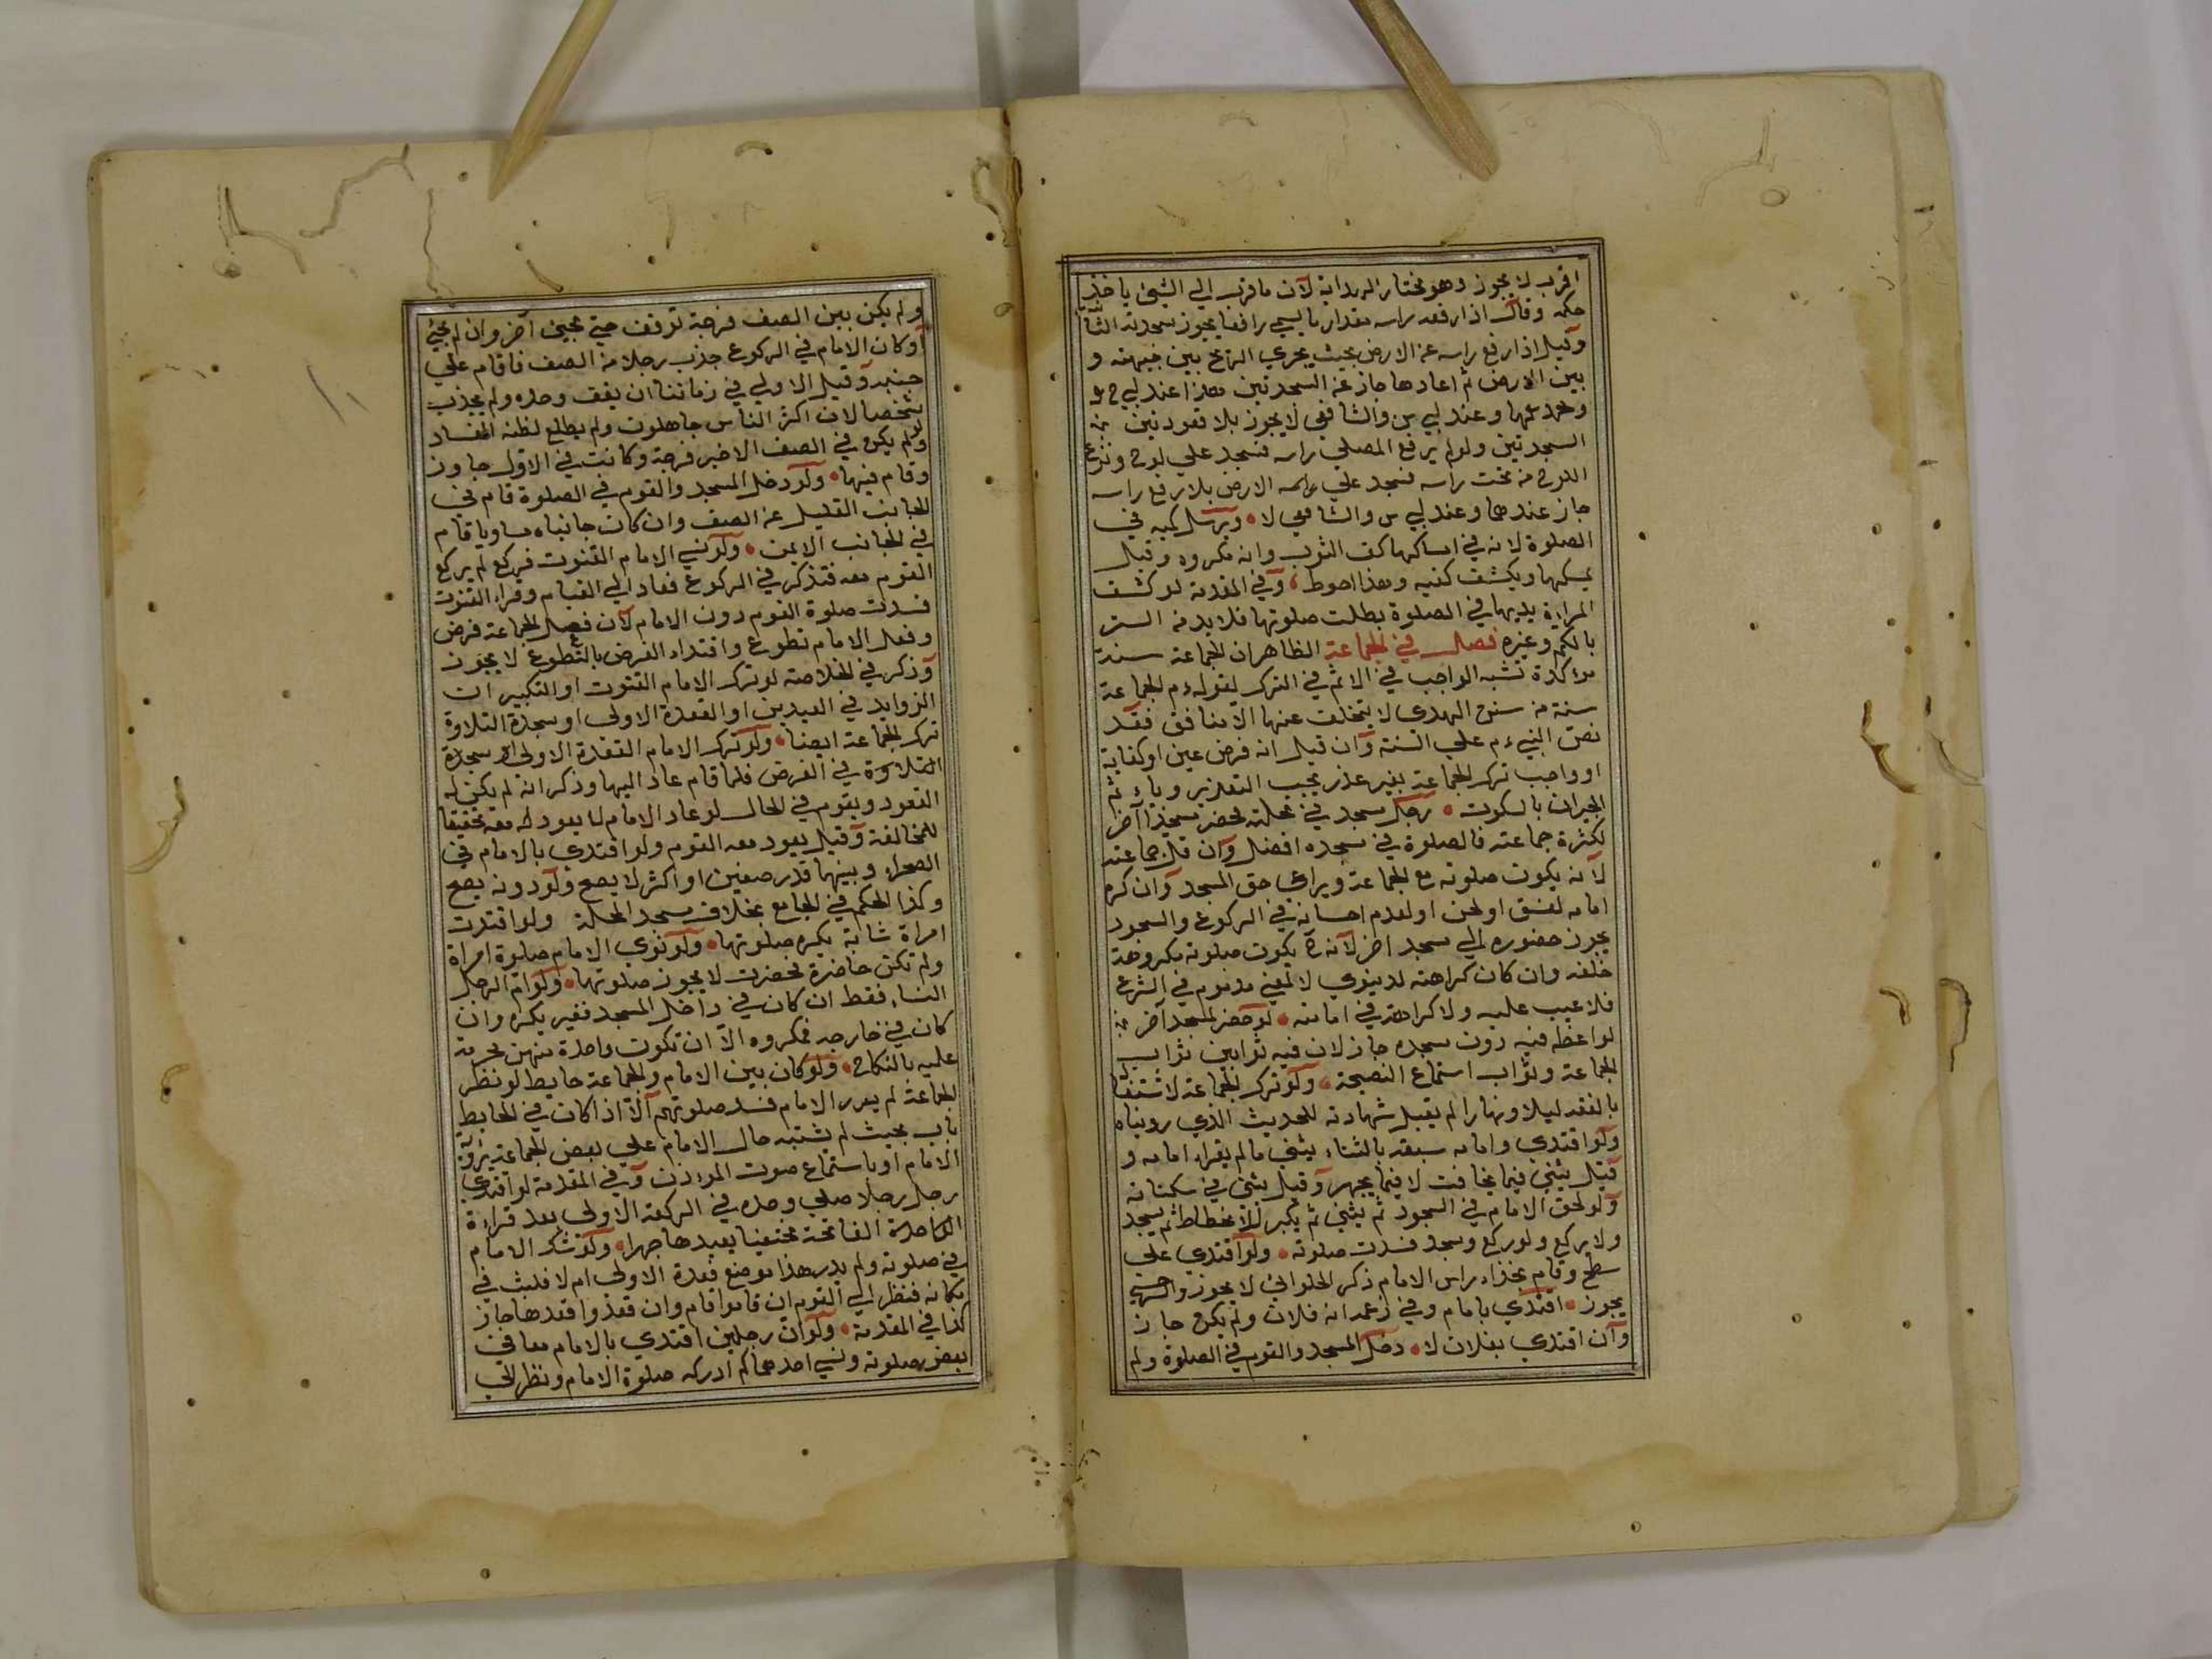 اقرب لا يجوز وهو مختار الهداية لان ما قرب الي الشيئ ياخذ
حكمه وقال اذا رفع راسه مقدار ما يسمي رافعا يجوز سجدته الثانية
وقيل اذا رفع راسه عن الارض بحيث يجري الريح بين جبهته و
بين الارض ثم اعادها جاز عن السجدتين هذا عند ابي ح
ومحمد وعند ابي س والشافعي لا يجوز بلا قعود بين
السجدتين ولو لم يرفع المصلي راسه فسجد علي لوح ونزع
اللوح من تحت راسه فسجد علي الارض بلا رفع راسه
جاز عندهما وعند ابي س والشافعي لا ويرسل كميه في
الصلوة لانه في امساكهما كف الثوب وانه مكروه وقيل
يمسكهما ويكشف كفيه وهذا احوط وفي المقدمة لو كشف
المراءة يديها في الصلوة بطلت صلوتها فلا بد من الستر
بالكم وغيره فصل في الجماعة الظاهر ان الجماعة سنة
مؤكدة تشبه الواجب في الاثم في الترك لقوله ءم الجماعة
سنة من سنن الهدي لا يتخلف عنها الا منافق فقد
نص النبي ءم علي السنة وان قيل انه فرض عين او كفاية
او واجب ترك الجماعة بغير عذر يجب التعزير وياءثم
الجيران بالسكوت رجل مسجد في محلته فحضر مسجدا آخر
لكثرة جماعته فالصلوة في مسجده افضل وان قل جماعته
لانه يكون صلوته مع الجماعة ويراعي حق المسجد وان كره
امامه لفسق او لحن او لعدم احسانه في الركوع والسجود
يجوز حضوره الي مسجد اخر لانه ح يكون صلوته مكروهة
خلفه وان كان كراهته لدنيوي لا لمعني مذموم في الشرع
فلا عيب عليه ولا كراهة في امامته لو حضر المسجد آخر
لواعظ فيه دون مسجده جاز لان فيه ثوابين ثواب
الجماعة وثواب استماع النصيحة ولو ترك الجماعة لاشتغاله
بالفقه ليلا ونهارا لم يقبل شهادته للحديث الذي رويناه
ولو اقتدي وامامه سبقه بالثناء يثني مالم يقراء امامه و
قيل يثني فيما يخافت لا فيما يجهر وقيل يثني في سكتاته
ولو لحق الامام في السجود ثم يثني ثم يكبر للانحطاط ثم يسجد
ولا يركع ولو ركع وسجد فسدت صلوته ولو اقتدي علي
سطح وقام بحذاء راس الامام ذكر الحلوائي لا يجوز والسرخسي
يجوز اقتدي بامام وفي زعمه انه فلان ولم يكن جاز
وان اقتدي بفلان لا دخل المسجد والقوم في الصلوة ولم
ولم يكن بين الصف فرجة توقف حتي يجيئ آخر وان لم يجئ
او كان الامام في الركوع جذب رجلا من الصف فاقام علي
جنبه وقيل الاولي في زماننا ان يقف وحده ولم يجذب
شخصا لان اكثر الناس جاهلون ولم يطلع لظنه الفساد
ولم يكن في الصف الاخير فرجة وكانت في الاول جاوز
وقام فيها ولو دخل المسجد والقوم في الصلوة قام في
الجانب القليل من الصف وان كان جانباه مساويا قام
في الجانب الايمن ولو نسي الامام القنوت فركع لم يركع
القوم معه فتذكر في الركوع فعاد الي القيام وقراء القنوت
فسدت صلوة القوم دون الامام لان فعل الجماعة فرض
وفعل الامام تطوع واقتداء الفرض بالتطوع لا يجوز
وذكر في الخلاصة لو ترك الامام القنوت او التكبيرات
الزوايد في العيدين او القعدة الاولي او سجدة التلاوة
ترك الجماعة ايضا ولو ترك الامام القعدة الاولي او سجدة
التلاوة في الفرض فلما قام عاد اليها وذكر انه لم يكن له
القعود ويقوم في الحال لو عاد الامام لا يعود معه تحقيقا
للمخالفة وقيل يعود معه القوم ولو اقتدي بالامام في
الصحراء وبينهما قدر صفين او اكثر لا يصح ولو دونه يصح
وكذا الحكم في الجامع بخلاف مسجد المحلة ولو اقتدت
امراة شابة يكره صلوتها ولو نوي الامام صلوة امراة
ولم تكن حاضرة فحضرت لا يجوز صلوتها ولو ام الرجل
النساء فقط ان كان في داخل المسجد فغير يكره وان
كان في خارجه فمكروه الا ان تكون واحدة منهن محرمة
عليه بالنكاح ولو كان بين الامام والجماعة حايط لو نظر
الجماعة لم يدر الامام فسد صلوتهم الا اذا كان في الحايط
باب بحيث لم يشتبه حال الامام علي بعض الجماعة برؤية
الامام او باستماع صوت المؤذن وفي المقدمة لو اقتدي
رجل رجلا صلي وحده في الركعة الاولي بعد قراءة
الفاتحة مختفيا يعيدها جهرا ولو شك الامام
في صلوته ولم يدر هذا موضع قعدة الاولي ام لا فلبث في
مكانه فنظر الي القوم ان قاموا قام وان قعدوا قعد هاجاز
كذا في المقدمة ولو ان رجلين اقتدي بالامام معا في
بعض صلوته ونسي احدهما كم ادركه صلوة الامام ونظر الي